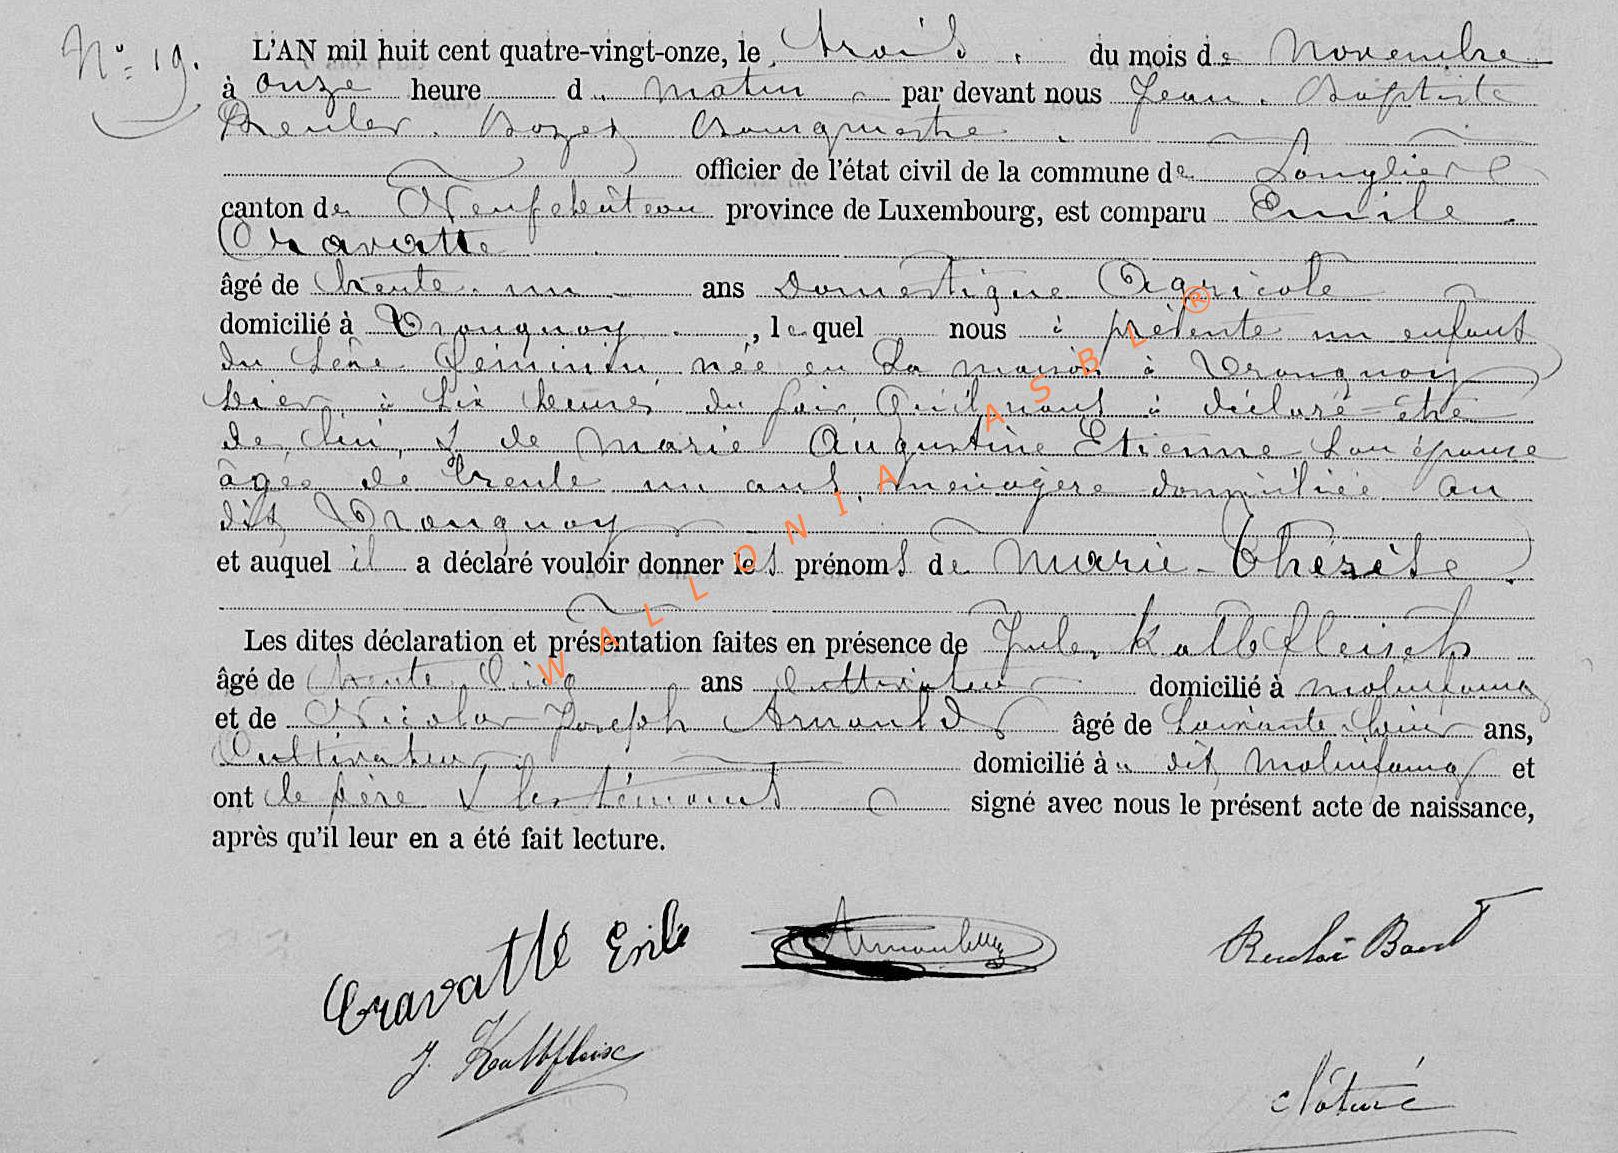 N° 19.
L'AN mil huit cent quatre-vingt-onze, le trois du mois de Novembre
à onze heure d matin par devant nous Jean Baptiste
Reuler Bourgmestre
officier de l'état civil de la commune de Longlier
canton de Neufchâteau province de Luxembourg, est comparu Emile
Cravatte
âgé de trente un ans Domestique Agricole
domicilié à Tronquoy, lequel nous à présenté un enfant
du sexe féminin, née en sa maison à Tronquoy
hier à six heures du soir, qu'il nous à déclaré être
de lui, & de Marie Augustine Etienne son épouse
âgée de trente un ans, menagère domiciliée au
dit Tronquoy
et auquel il a déclaré vouloir donner les prénoms de Marie-Thérèse.
Les dites déclaration et présentation faites en présence de Jules Kalbfleisch
âgé de trente cinq ans cultivateur domicilié à Molinfaing
et de Nicolas Joseph Arnould âgé de soixante ans,
Cultivateur domicilié à u dit Molinfaing et
ont le père & les témoins signé avec nous le présent acte de naissance,
après qu'il leur en a été fait lecture.
Cravatte Emile
J. Kalbfleisc
Clôturé
WALLONIA ASBL ®